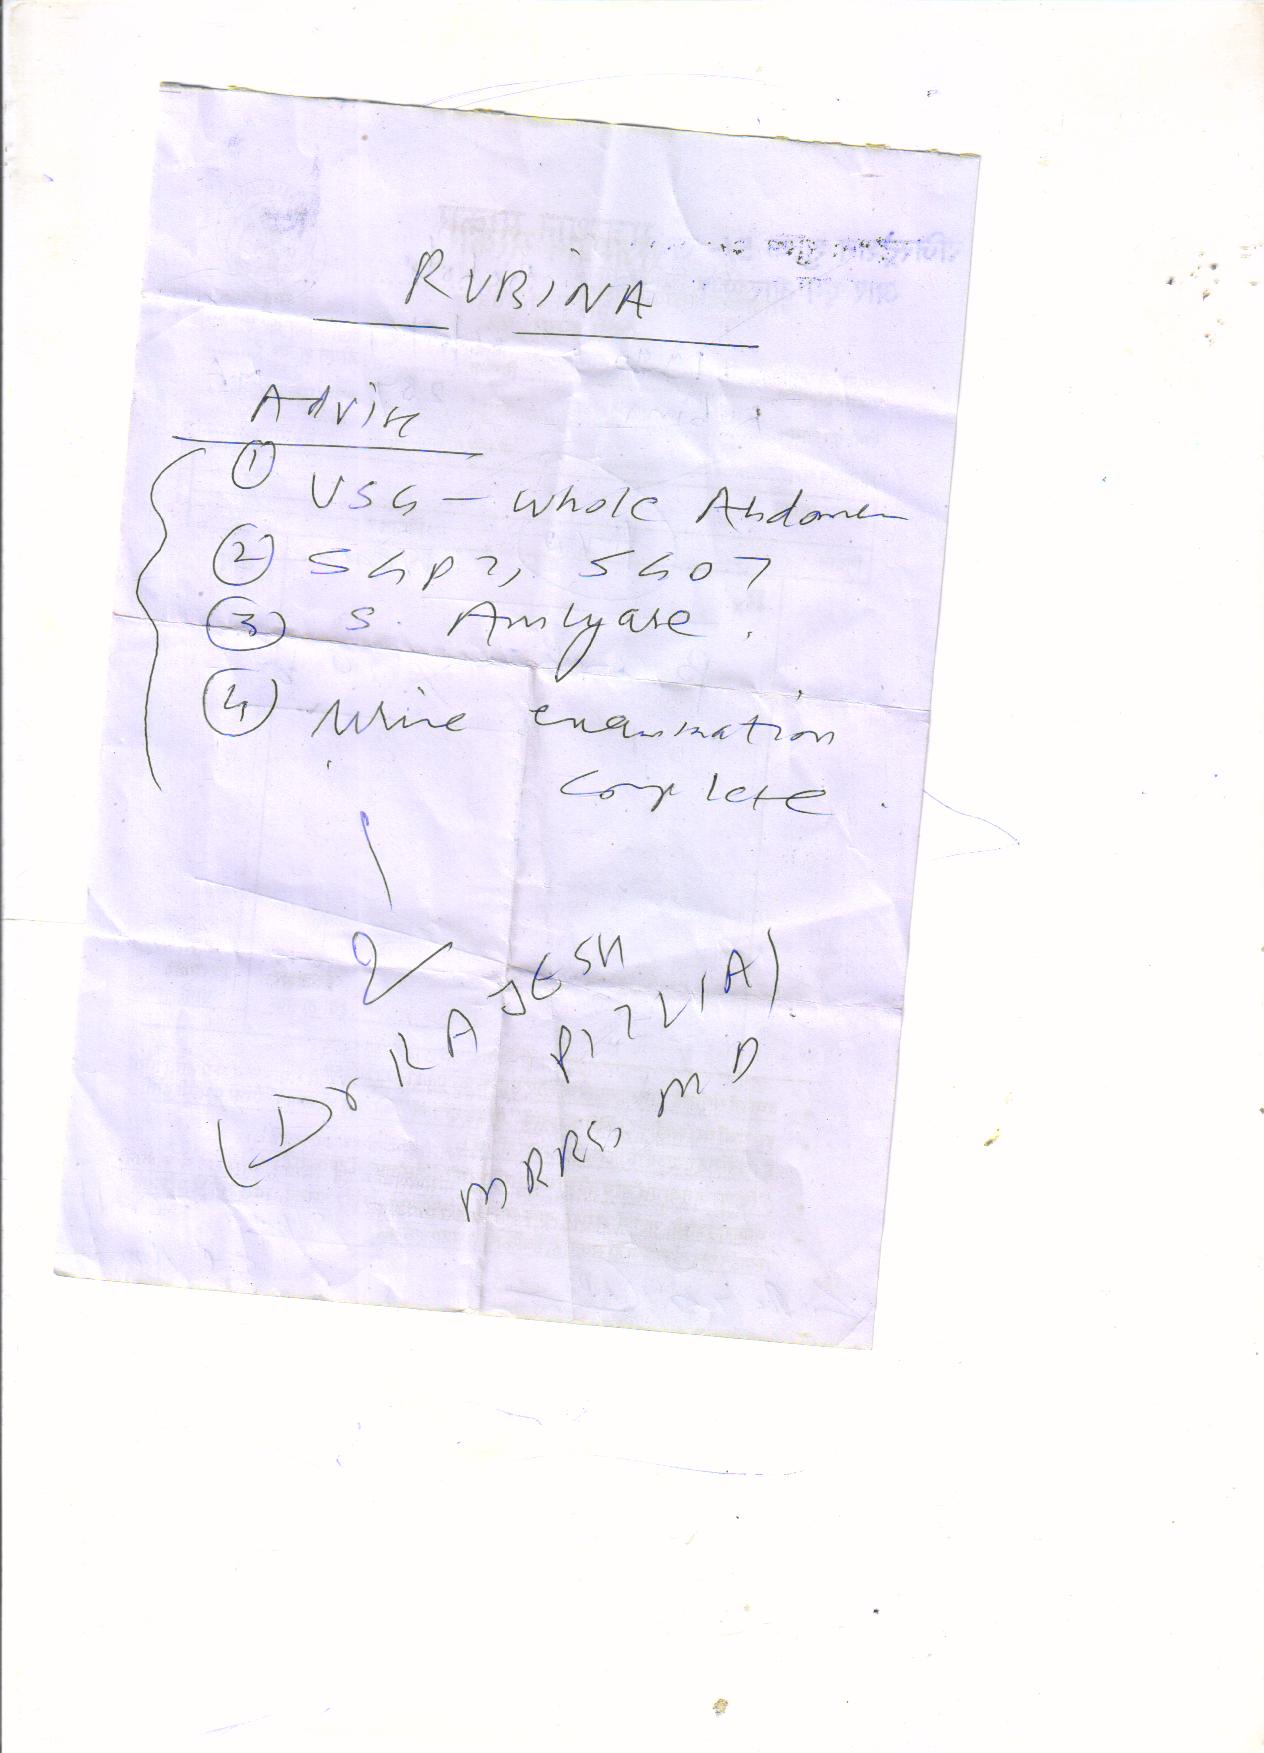 RUBINA
Advise
① USG - Whole Abdomen
② SGPT, SGOT
③ S. Amlyase.
④ Urine examination
complete.
(Dr RAJESH
MBBS, MD